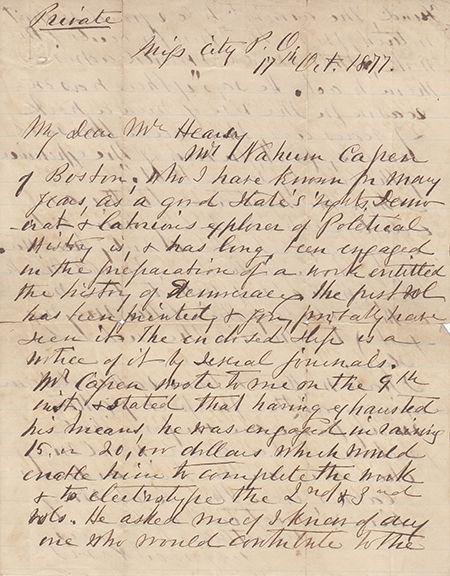 Private
Miss City P. O.
17th Oct. 1877.
My dear Mr Hearsy
Mr Nahum Capen
of Boston, who I have known for many
years, as a good State's rights Demo-
-crat, & laborious explorer of Political
History is, & has long been engaged
in the preparation of a work entitled
the history of Democracy. The first vol
has been printed, & you probably have
seen it. The enclosed slip is a
notice of it by several journals.
Mr Capen wrote to me on the 9th
inst, & stated that having exhausted
his means, he was engaged in raising
15. or 20,000 dollars which would
enable him to complete the work
& to electrotype the 2nd & 3rd
vols. He asked me if I knew of any
one who would contribute to the